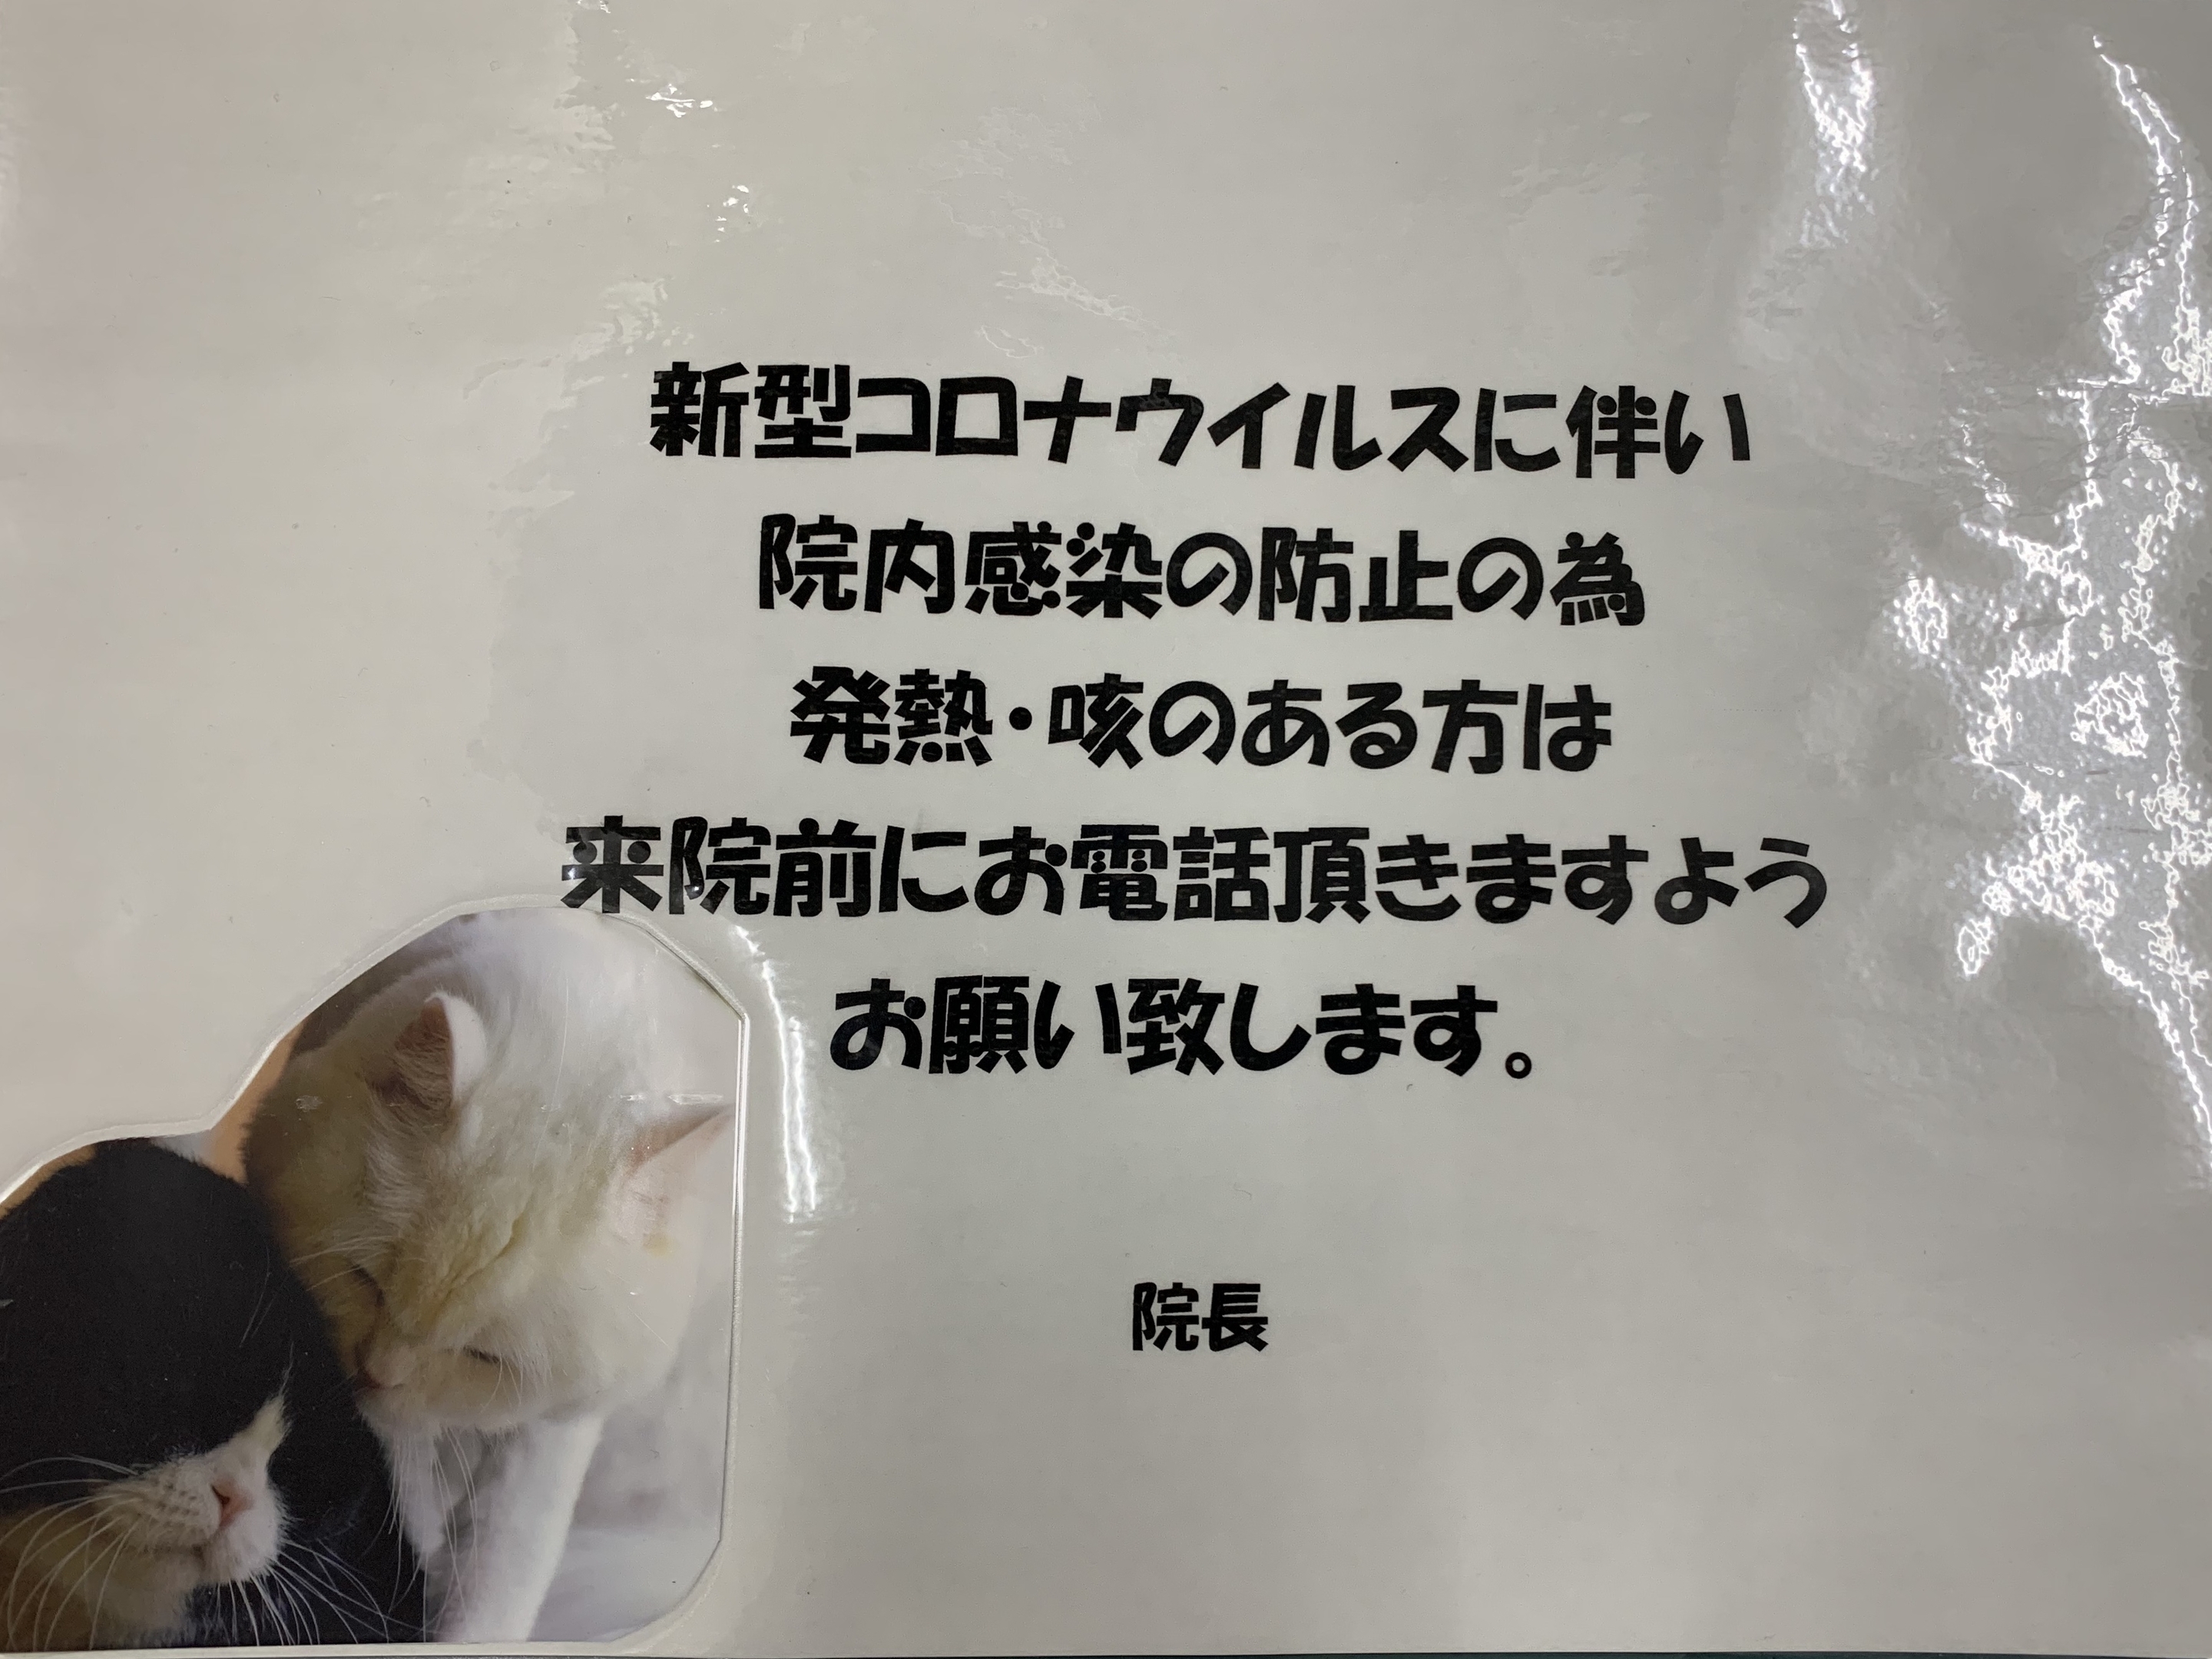 新型コロナウイルスに伴い
院内感染の防止の為
発熱・咳のある方は
来院前にお電話頂きますよう
お願い致します。
院長